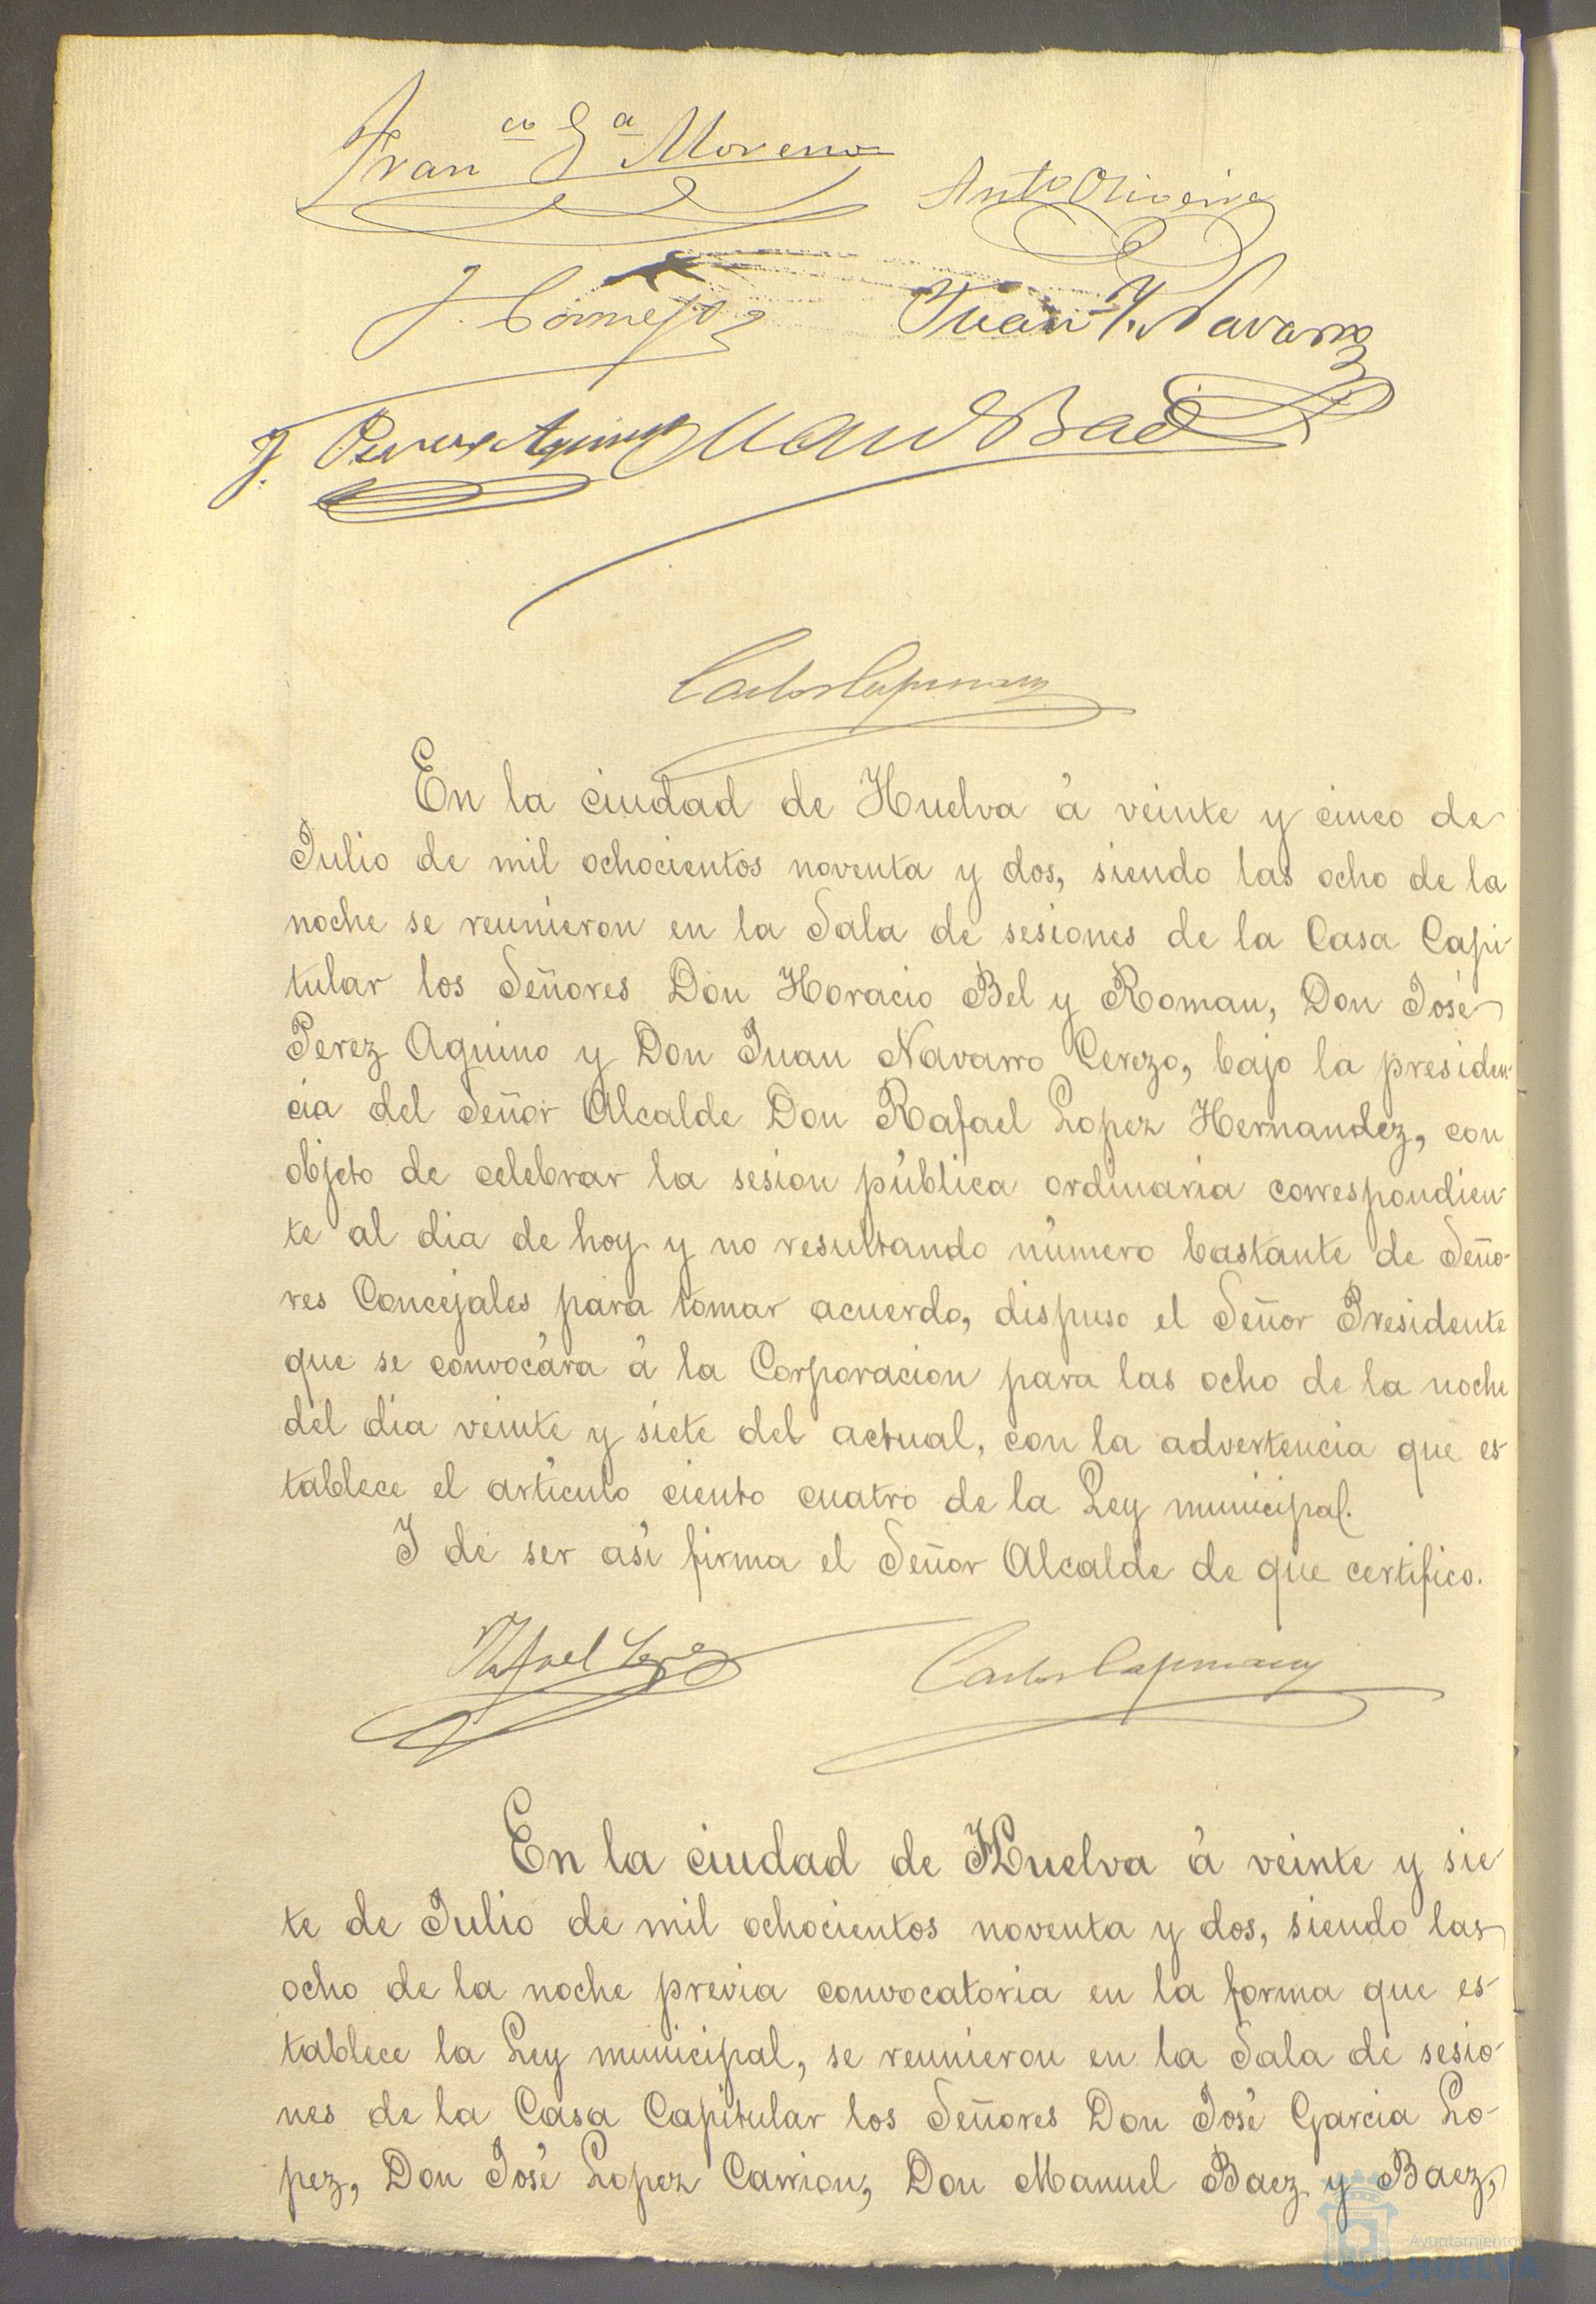 Fran.co G.a Moreno
Ant.o Oliveira
J. Cormejo
Juan Y. Navarro
J. Perez Aquino Man Baez
Carlos Capmany
En la ciudad de Huelva á veinte y cinco de
Julio de mil ochocientos noventa y dos, siendo las ocho de la
noche se reunieron en la Sala de sesiones de la Casa Capi-
tular los Señores Don Horacio Bel y Roman, Don José
Perez Aquino y Don Juan Navarro Cerezo, bajo la presiden-
cia del Señor Alcalde Don Rafael Lopez Hernandez, con
objeto de celebrar la sesion pública ordinaria correspondien-
te al dia de hoy y no resultando número bastante de Seño-
res Concejales para tomar acuerdo, dispuso el Señor Presidente
que se convocára á la Corporacion para las ocho de la noche
del dia veinte y siete del actual, con la advertencia que es-
tablece el artículo ciento cuatro de la Ley municipal.
Y de ser así firma el Señor Alcalde de que certifico.
Rafael Lopez
Carlos Capmany
En la ciudad de Huelva á veinte y sie-
te de Julio de mil ochocientos noventa y dos, siendo las
ocho de la noche previa convocatoria en la forma que es-
tablece la Ley municipal, se reunieron en la Sala de sesio-
nes de la Casa Capitular los Señores Don José Garcia Lo-
pez, Don José Lopez Carrion, Don Manuel Baez y Baez,
Ayuntamiento
HUELVA